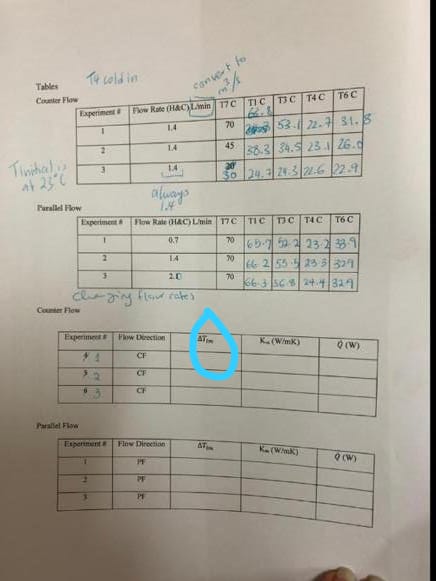 T4 cold in
convert to
m³/s
Tables
Counter Flow
Experiment # Flow Rate (H&C) L/min T7 C T1 C T3 C T4 C T6 C
1 1.4 70 66.8 53.1 22.7 31.8
2 1.4 45 38.3 34.5 23.1 26.0
3 1.4 30 24.7 24.3 22.6 22.9
Tinitial is
at 23°C
always
1.4
Parallel Flow
Experiment # Flow Rate (H&C) L/min T7 C T1 C T3 C T4 C T6 C
1 0.7 70 65.7 52.2 23.2 33.9
2 1.4 70 66.2 55.5 23.3 32.9
3 2.0 70 66.3 56.8 24.4 32.9
Changing flow rates
Counter Flow
Experiment # Flow Direction ΔTlm Km (W/mK) Q̇ (W)
4 1 CF
5 2 CF
6 3 CF
Parallel Flow
Experiment # Flow Direction ΔTlm Km (W/mK) Q̇ (W)
1 PF
2 PF
3 PF